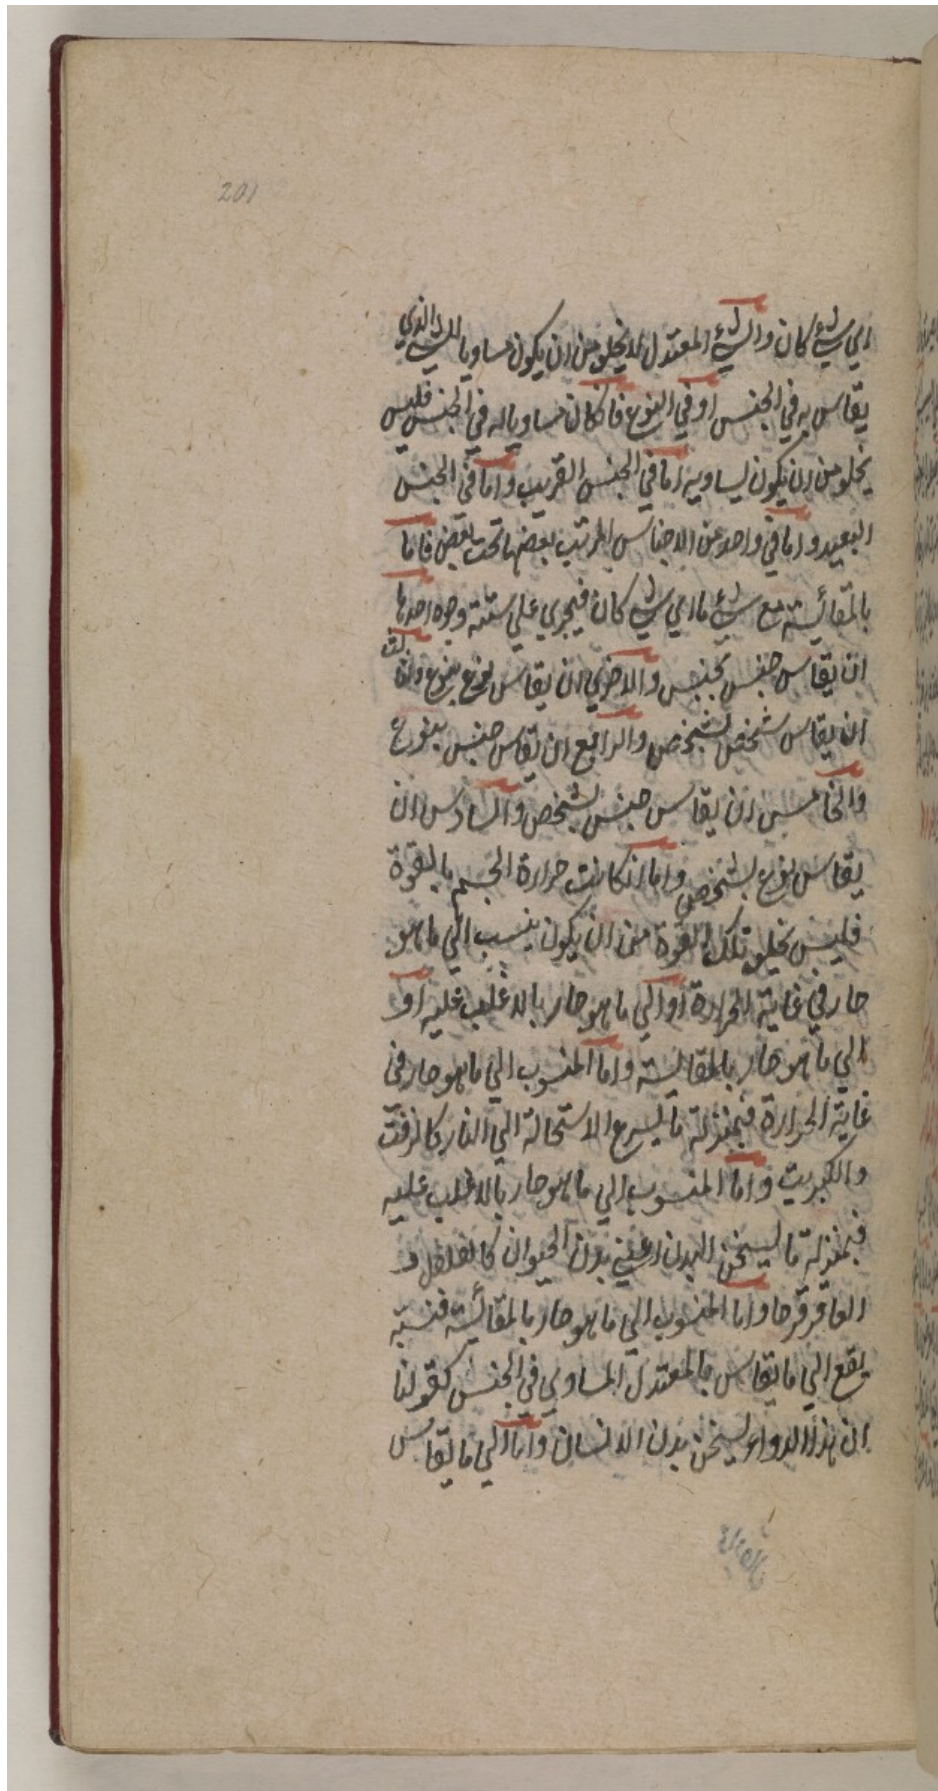 201
اي شئ كان والشئ المعتدل لا يخلو من ان يكون مساويا للشئ الذي
يقاس به في الجنس او في النوع فان كان مساويا له في الجنس فليس
يخلو من ان يكون يساويه اما في الجنس القريب واما في الجنس
البعيد واما في واحد من الاجناس المرتب بعضها تحت بعض فاما
بالمقائسة مع شئ ما اي شئ كان فيجري علي ستة وجوه احدها
ان يقاس جنس بجنس والاخري ان يقاس نوع بنوع والثالث
ان يقاس شخص بشخص والرابع ان يقاس جنس بنوع
والخامس ان يقاس جنس بشخص والسادس ان
يقاس نوع بشخص واما ان كانت حرارة الجسم بالقوة
فليس يخلو تلك القوة من ان يكون ينسب الي ما هو
حار في غاية الحرارة او الي ما هو حار بالاغلب عليه او
الي ما هو حار بالمقائسة واما المنسوب الي ما هو حار في
غاية الحرارة فبمنزلة ما يسرع الاستحالة الي النار كالزفت
والكبريت واما المنسوب الي ما هو حار بالاغلب عليه
فبمنزلة ما يسخن البدن اعني بدن الحيوان كالفلفل و
العاقر قرحا واما المنسوب الي ما هو حار بالمقائسة فنسبته
يقع الي ما يقاس بالمعتدل المساوي في الجنس كقولنا
ان هذا الدواء يسخن بدن الانسان واما الي ما يقاس